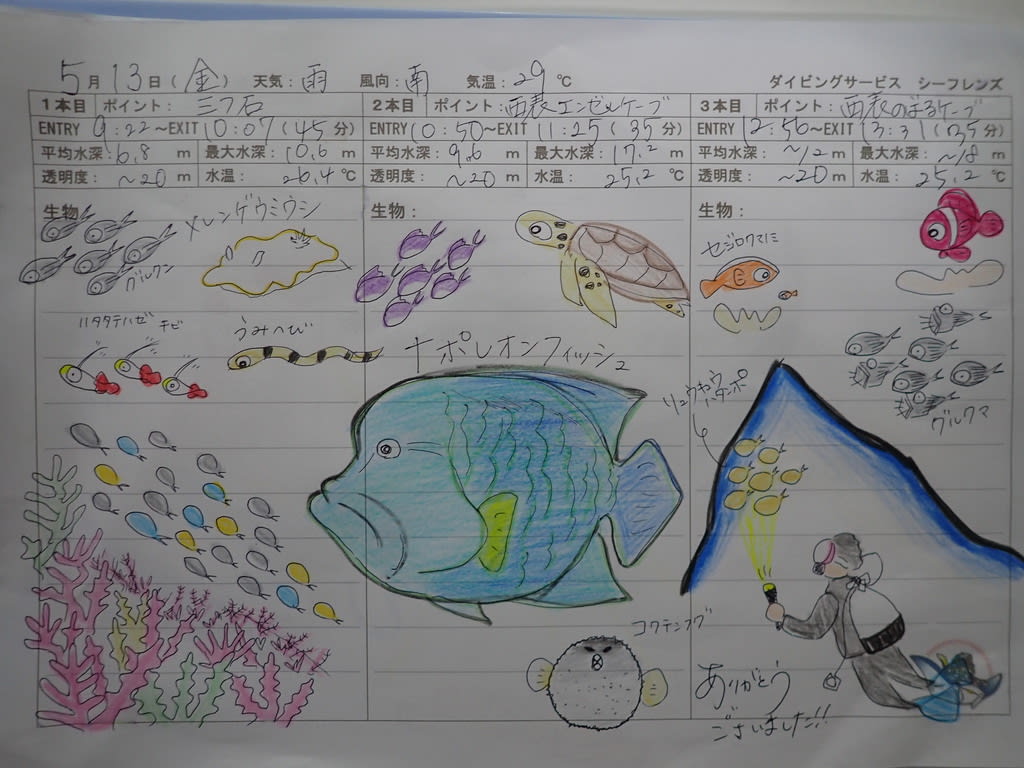 5月13日(金) 天気:雨 風向:南 気温:29℃ ダイビングサービス シーフレンズ
1本目 ポイント: 三ツ石
ENTRY 9:22~EXIT 10:07(45分)
平均水深:6.8 m 最大水深:10.6 m
透明度: ~20 m 水温: 26.4 ℃
生物:
メレンゲウミウシ
グルクン
ハタタテハゼ チビ
うみへび
2本目 ポイント:西表エンゼルケーブ
ENTRY 10:50~EXIT 11:25(35分)
平均水深:9.6 m 最大水深:17.2 m
透明度: ~20 m 水温: 25.2 ℃
生物:
ナポレオンフィッシュ
コクテンフグ
3本目 ポイント:西表のまるケーブ
ENTRY 12:56~EXIT 13:31(35分)
平均水深: ~12 m 最大水深: ~18 m
透明度: ~20 m 水温: 25.2 ℃
生物:
セジロクマミ
グルクマ
リュウキュウ
ハタンポ
ありがとう
ございました!!